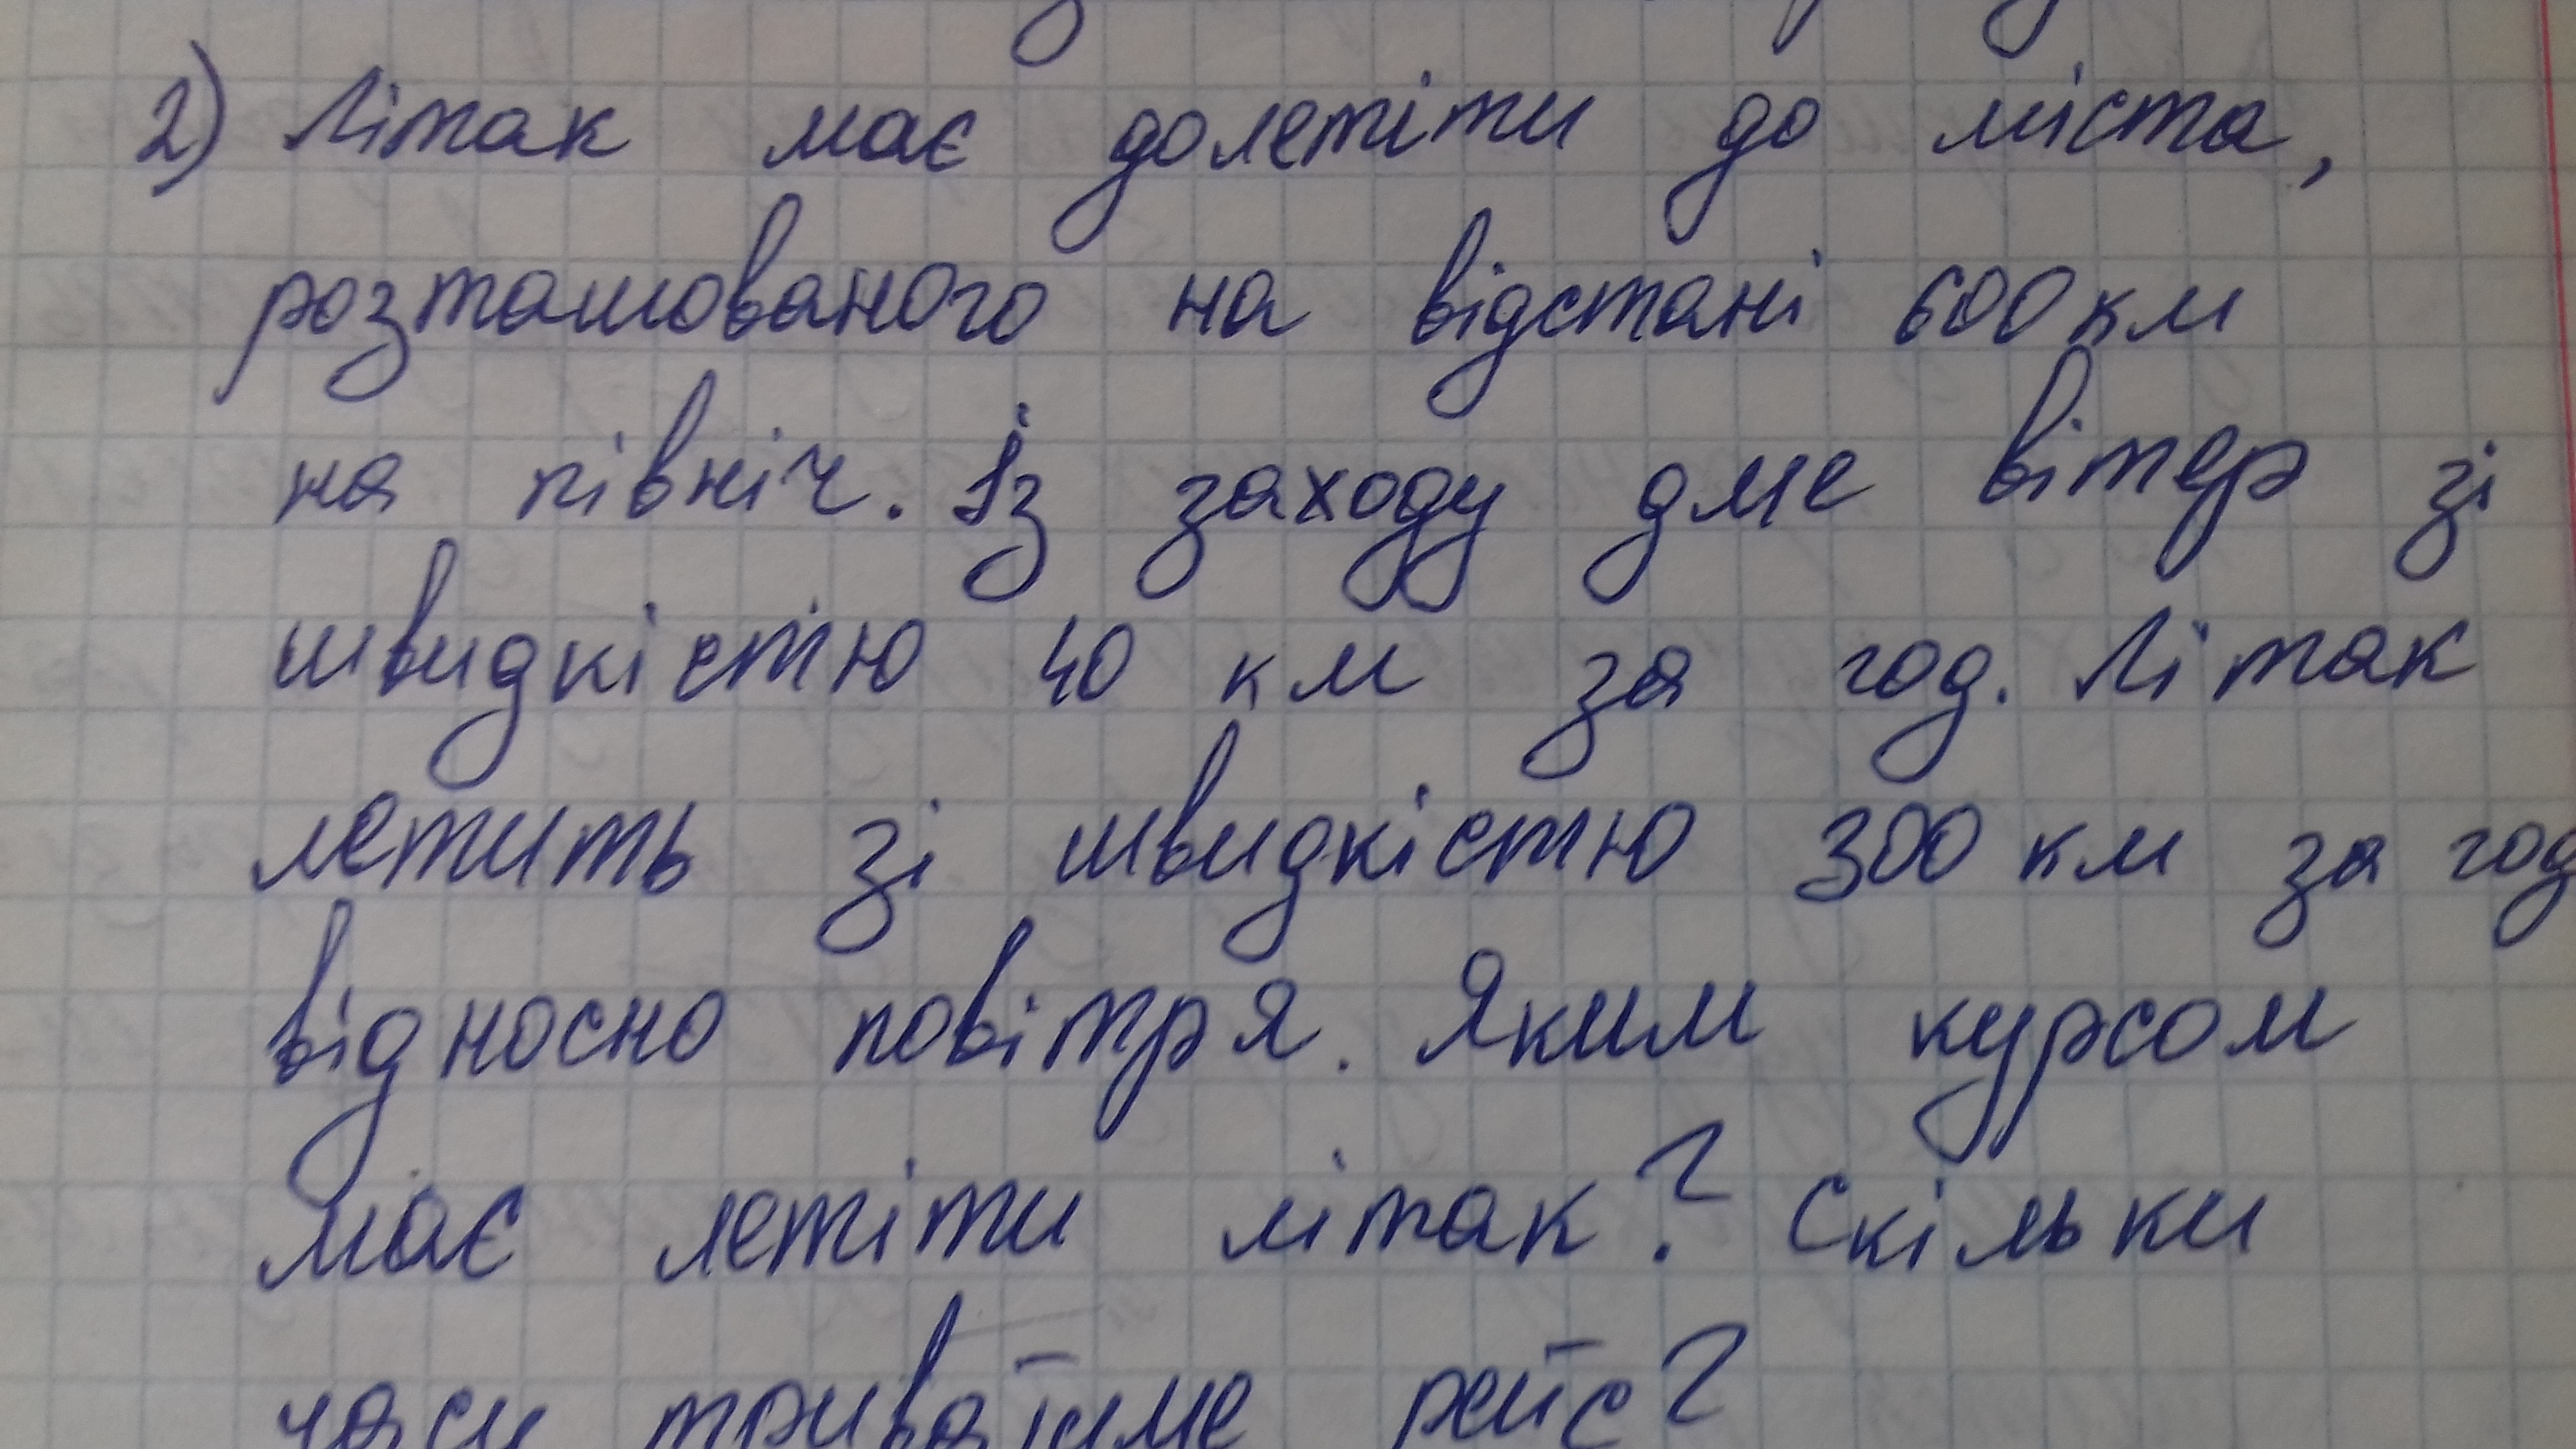 2) Літак має долетіти до міста,
розташованого на відстані 600 км
на північ. Із заходу дме вітер зі
швидкістю 40 км за год. Літак
летить зі швидкістю 300 км за год
відносно повітря. Яким курсом
має летіти літак? Скільки
часу триватиме рейс?